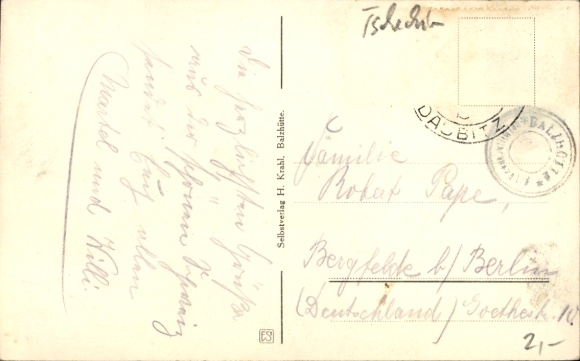 Tschechei
Die herzlichsten Grüße
aus der schönen Schweiz
sendet Euch allen
Martel und Willi
Selbstverlag H. Krahl, Balzhütte.
DAUBITZ
BALZHÜTTE
Familie
Robert Pape,
Bergfelde b/ Berlin
(Deutschland) Goethestr. 10
2,-